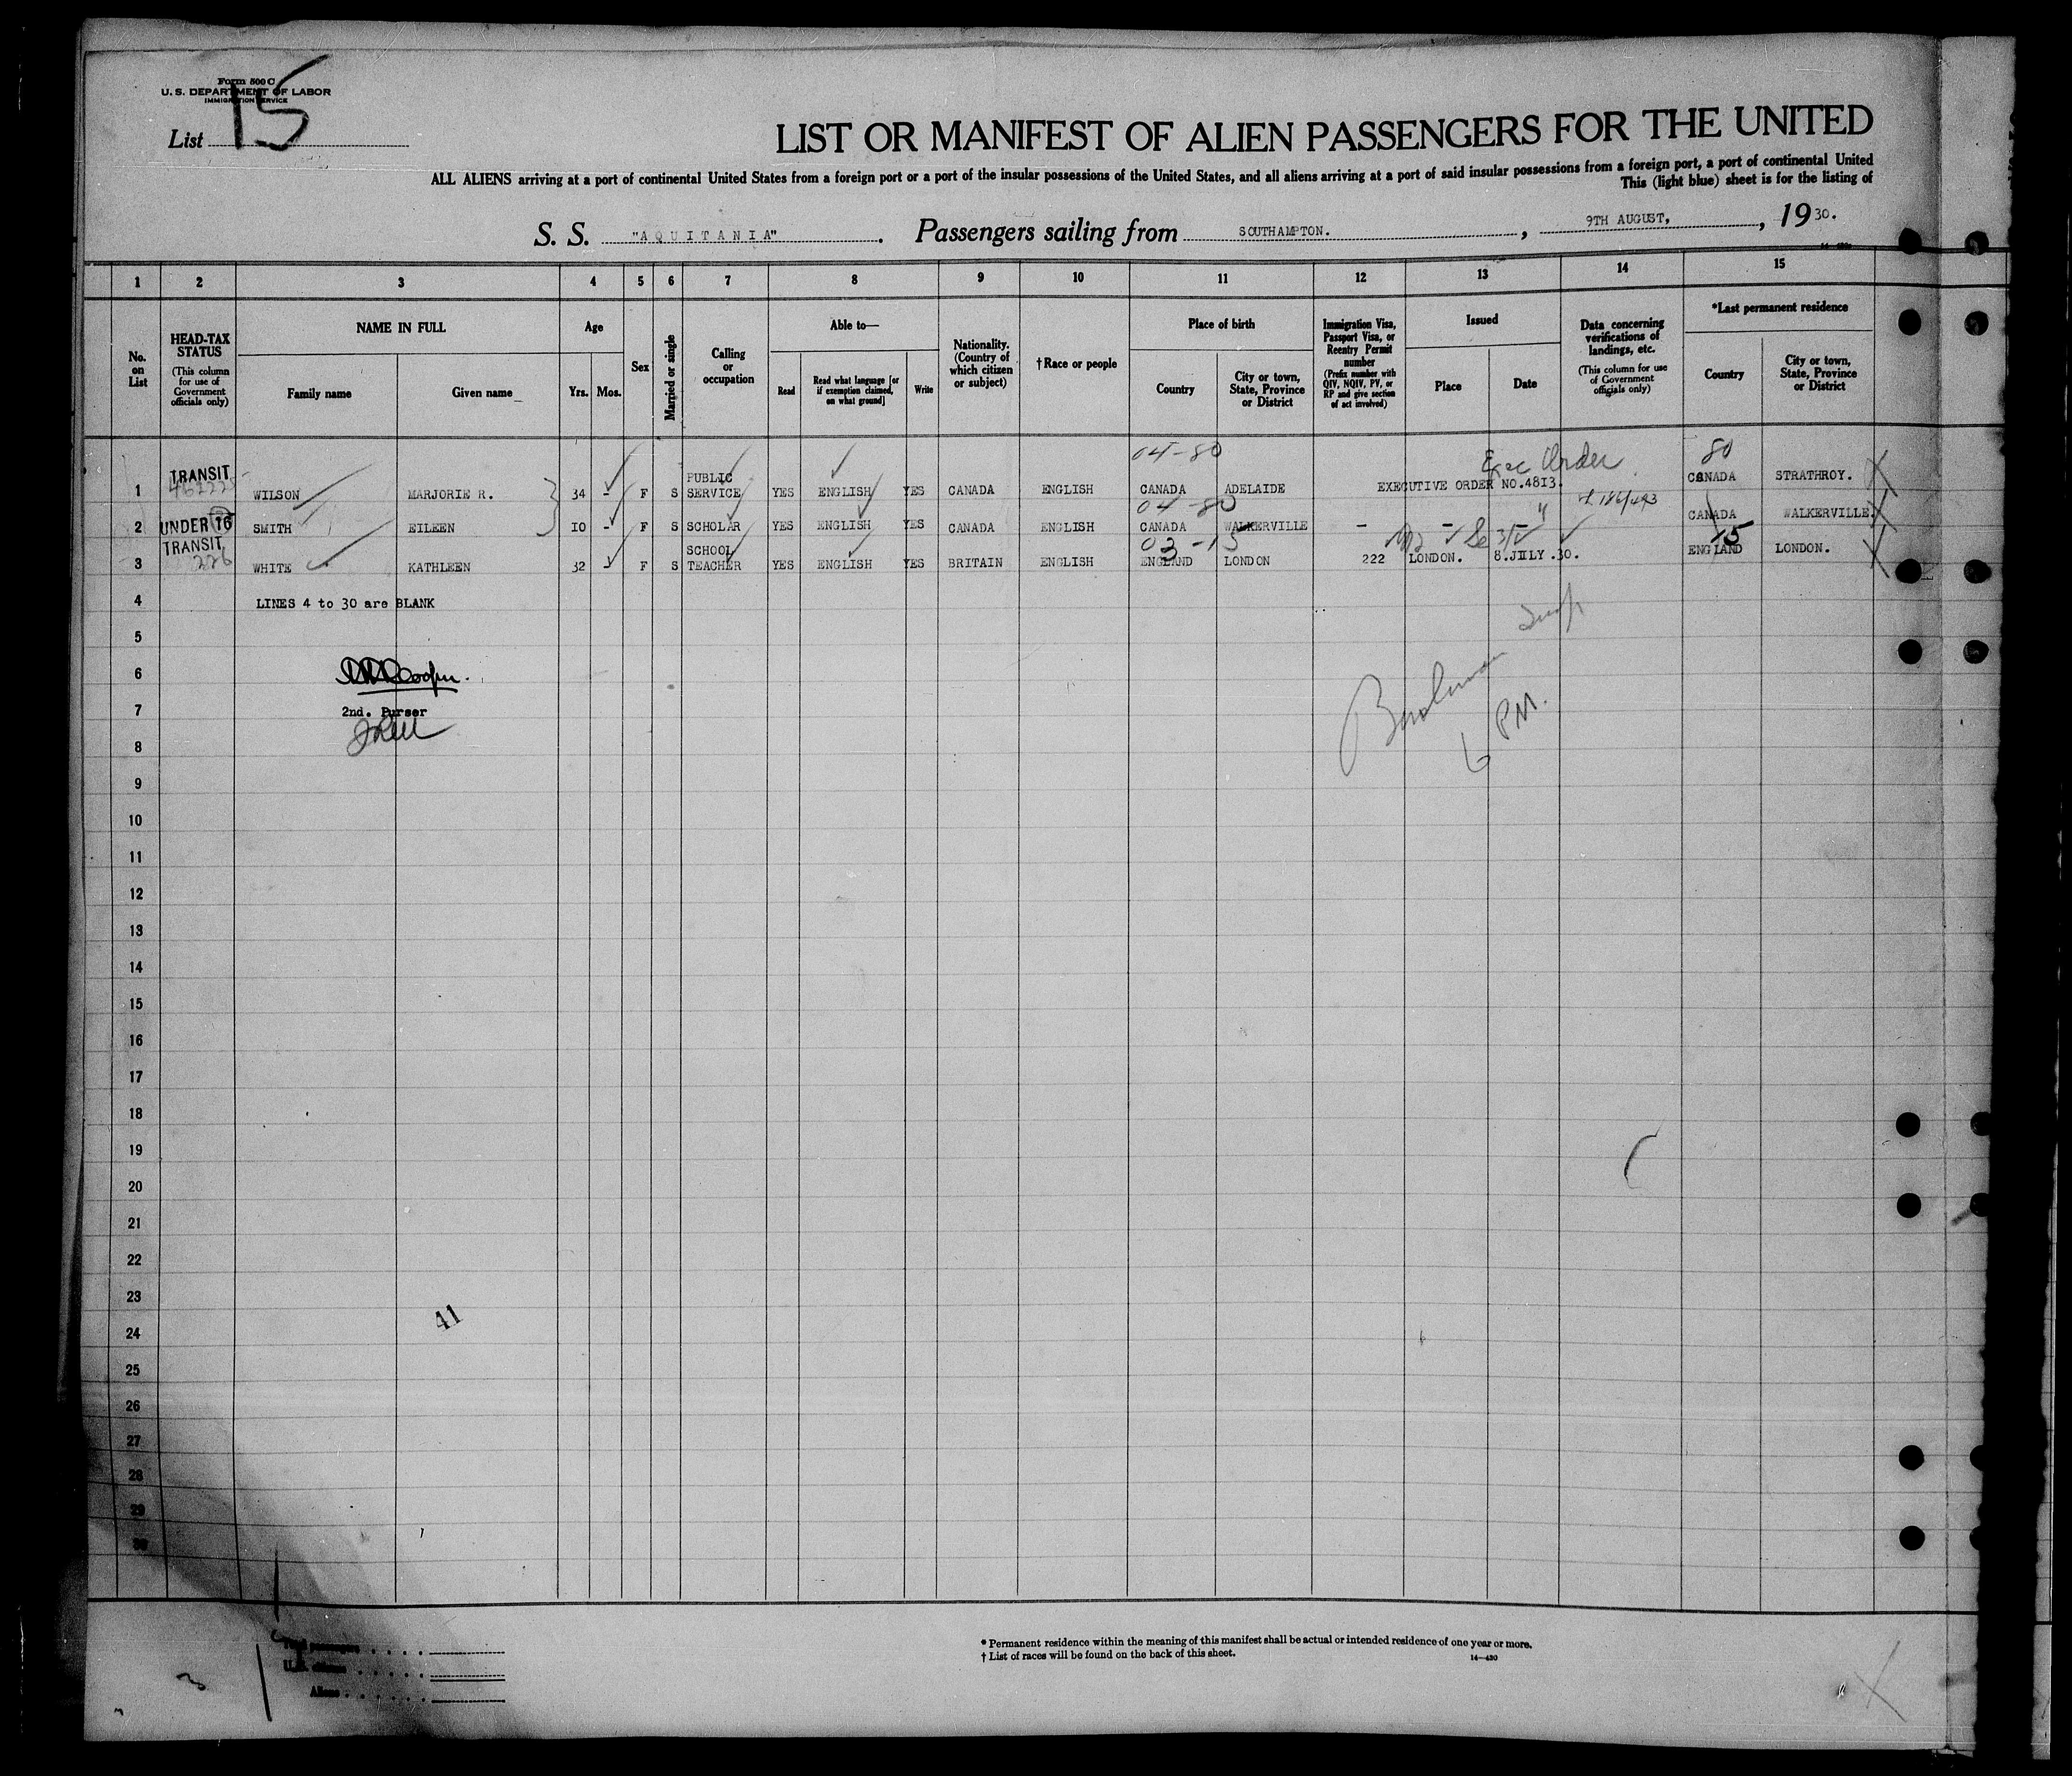 Form 500 C
U. S. DEPARTMENT OF LABOR
IMMIGRATION SERVICE
List 15
LIST OR MANIFEST OF ALIEN PASSENGERS FOR THE UNITED
ALL ALIENS arriving at a port of continental United States from a foreign port or a port of the insular possessions of the United States, and all aliens arriving at a port of said insular possessions from a foreign port, a port of continental United
This (light blue) sheet is for the listing of
S. S. "AQUITANIA". Passengers sailing from SOUTHAMPTON. , 9TH AUGUST, , 1930.
1 2 3 4 5 6 7 8 9 10 11 12 13 14 15
No. on List
HEAD-TAX STATUS (This column for use of Government officials only)
NAME IN FULL
Family name
Given name
Age
Yrs. Mos.
Sex
Married or single
Calling or occupation
Able to—
Read
Read what language [or if exemption claimed, on what ground]
Write
Nationality. (Country of which citizen or subject)
† Race or people
Place of birth
Country
City or town, State, Province or District
Immigration Visa, Passport Visa, or Reentry Permit number (Prefix number with QIV, NQIV, PV, or RP and give section of act involved)
Issued
Place
Date
Data concerning verifications of landings, etc. (This column for use of Government officials only)
*Last permanent residence
Country
City or town, State, Province or District
04-80 Exec Order 80
1 TRANSIT WILSON MARJORIE R. 34 - F S PUBLIC SERVICE YES ENGLISH YES CANADA ENGLISH CANADA ADELAIDE EXECUTIVE ORDER NO.4813. CANADA STRATHROY.
04-80
2 UNDER 16 SMITH EILEEN 10 - F S SCHOLAR YES ENGLISH YES CANADA ENGLISH CANADA WALKERVILLE - - - " CANADA WALKERVILLE.
03-15 15
3 TRANSIT 226 WHITE KATHLEEN 32 - F S SCHOOL TEACHER YES ENGLISH YES BRITAIN ENGLISH ENGLAND LONDON 222 LONDON. 8.JULY.30. ENGLAND LONDON.
4 LINES 4 to 30 are BLANK
5
6
7 2nd. Purser
6 PM.
8
9
10
11
12
13
14
15
16
17
18
19
20
21
22
23
41
24
25
26
27
28
29
30
Total passengers
U.S. citizens
Aliens
3
* Permanent residence within the meaning of this manifest shall be actual or intended residence of one year or more.
† List of races will be found on the back of this sheet.
14—430